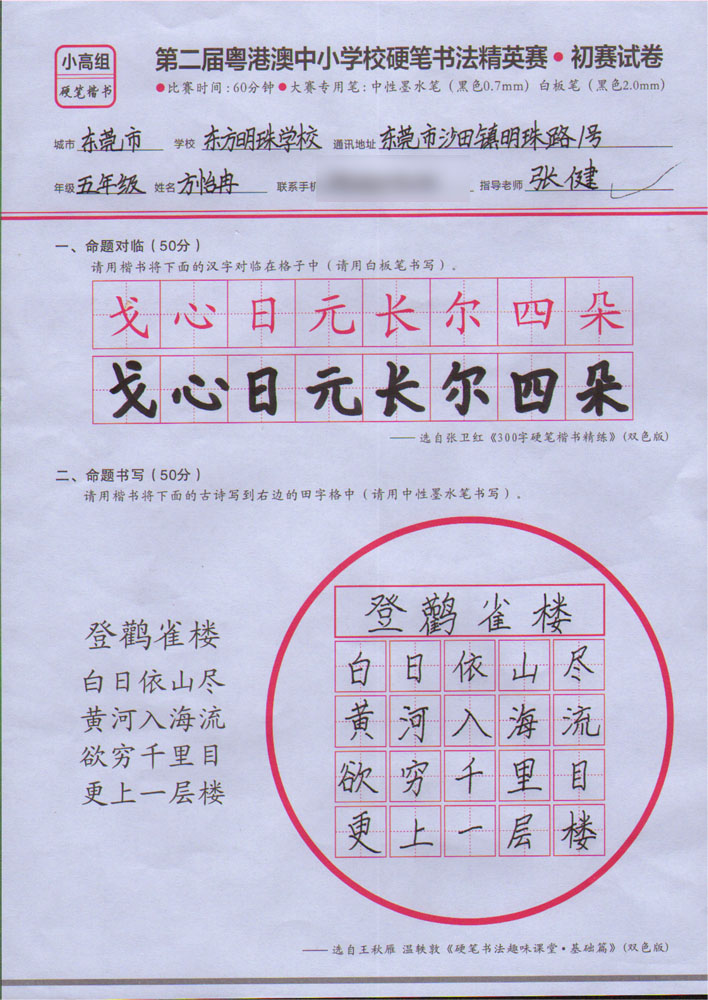 小高组
硬笔楷书
第二届粤港澳中小学校硬笔书法精英赛·初赛试卷
●比赛时间:60分钟●大赛专用笔:中性墨水笔(黑色0.7mm) 白板笔(黑色2.0mm)
城市 东莞市 学校 东方明珠学校 通讯地址 东莞市沙田镇明珠路1号
年级 五年级 姓名 方怡冉 联系手机 指导老师 张健
一、命题对临(50分)
请用楷书将下面的汉字对临在格子中(请用白板笔书写)。
戈心日元长尔四朵
戈心日元长尔四朵
——选自张卫红《300字硬笔楷书精练》(双色版)
二、命题书写(50分)
请用楷书将下面的古诗写到右边的田字格中(请用中性墨水笔书写)。
登鹳雀楼
白日依山尽
黄河入海流
欲穷千里目
更上一层楼
登鹳雀楼
白日依山尽
黄河入海流
欲穷千里目
更上一层楼
——选自王秋雁 温轶敦《硬笔书法趣味课堂·基础篇》(双色版)